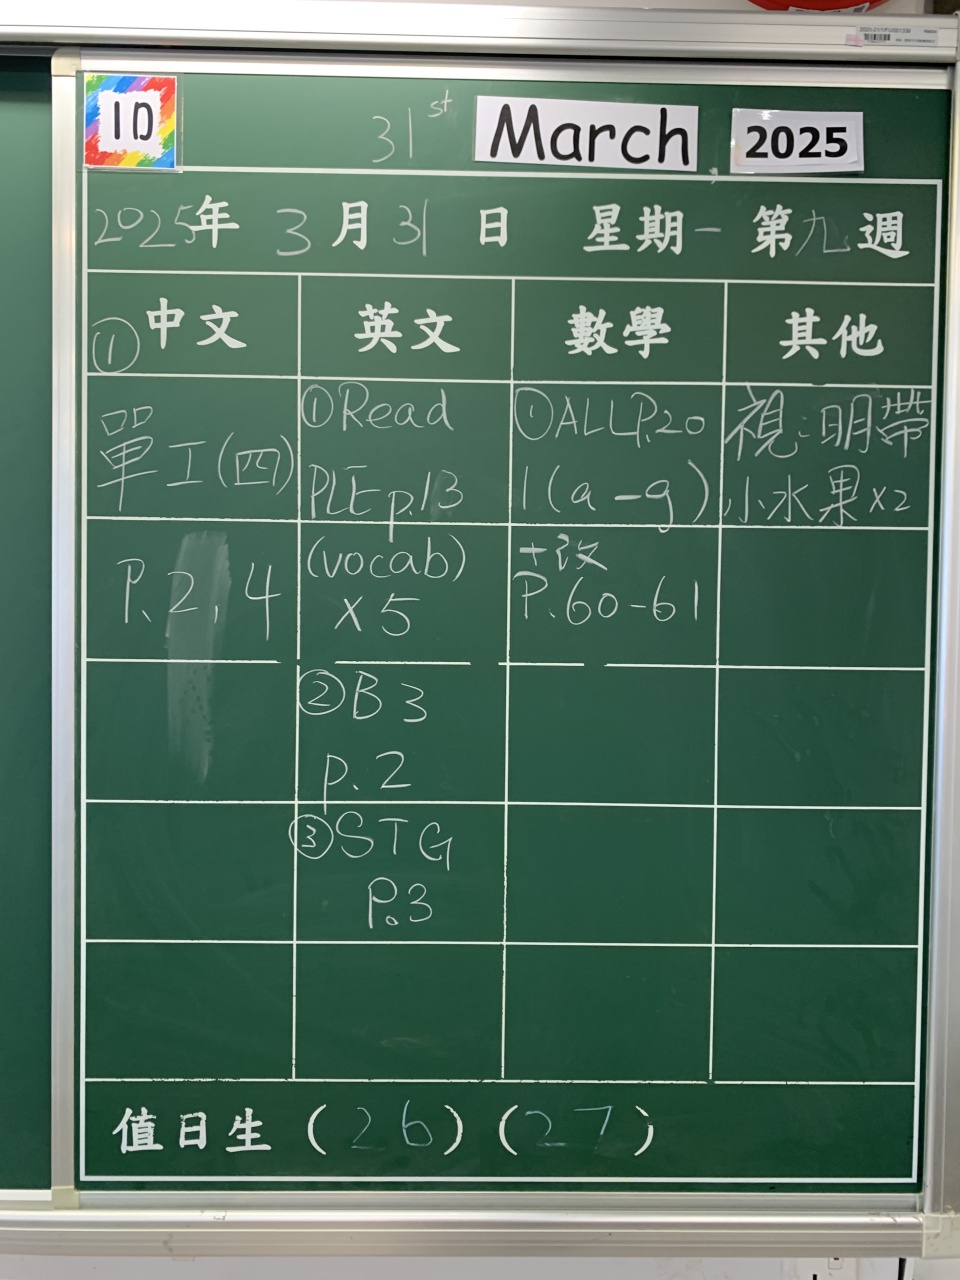 1D 31st March 2025
2025年 3月31日 星期一 第九週
①中文 英文 數學 其他
單工(四)
P.2,4
①Read
PLE p.13
(vocab)
x5
②B3
p.2
③STG
P.3
①ALL P.20
1(a-g)
+改
P.60-61
視:明帶
小水果x2
值日生(26)(27)